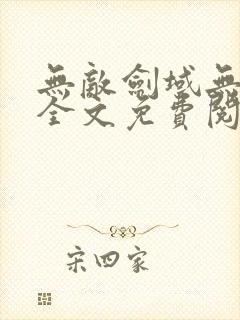 無敵劍域無
全文免費閱
宋四家